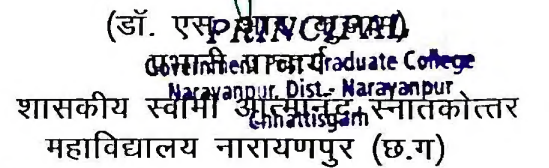 (डॉ. एस. आर. कुंजाम)
PRINCIPAL
प्रभारी प्राचार्य
Government Post Graduate College
Narayanpur, Dist.- Narayanpur
शासकीय स्वामी आत्मानंद स्नातकोत्तर
Chhattisgarh
महाविद्यालय नारायणपुर (छ.ग)